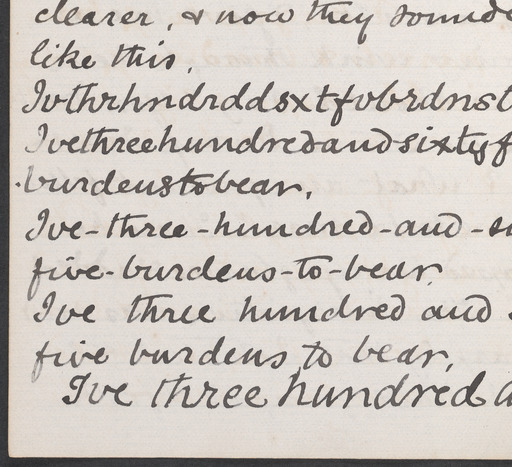 clearer, & now they sounde
like this,
Ivthrhndrddsxtfvbrdnst
Ivethreehundredandsixtyf
burdenstobear,
Ive-three-hundred-and-si
five-burdens-to-bear,
Ive three hundred and s
five burdens to bear,
Ive three hundred a